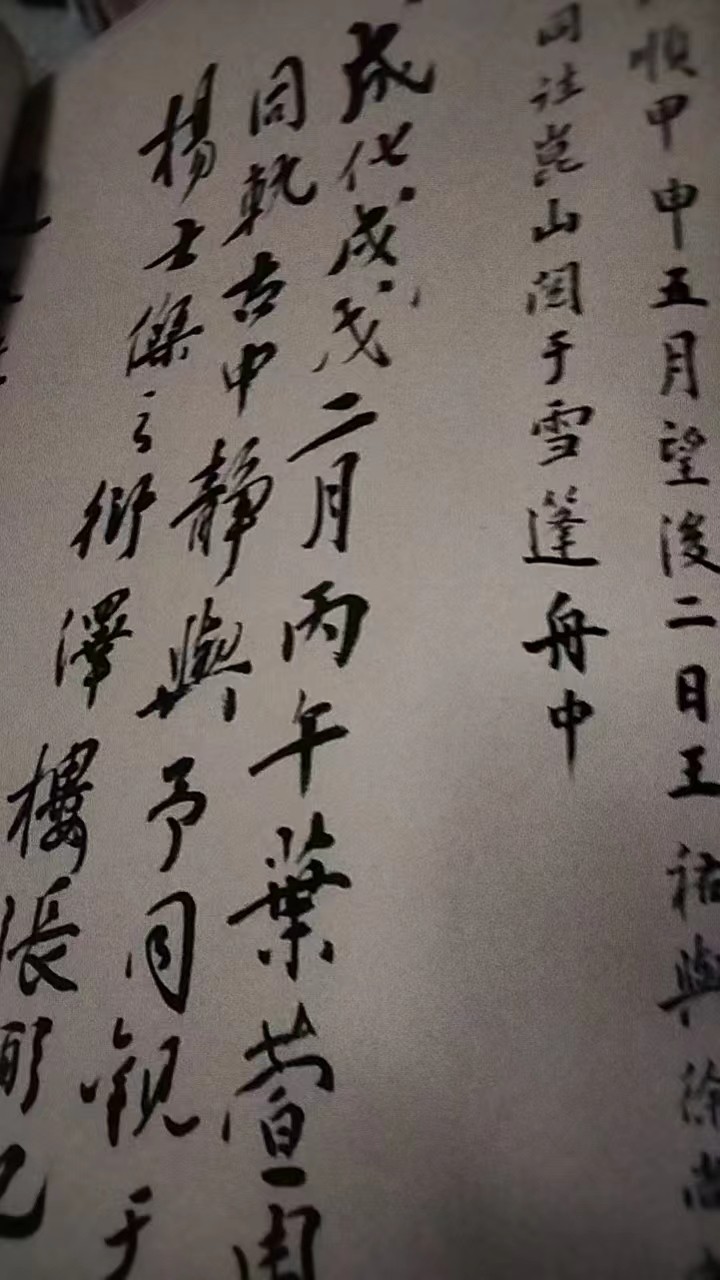 順甲申五月望後二日王祐與徐尚
同往崑山閱于雪篷舟中
成化戊戌二月丙午葉萱周
同軌古中靜與予同觀于
楊士傑之衍澤樓張弼記